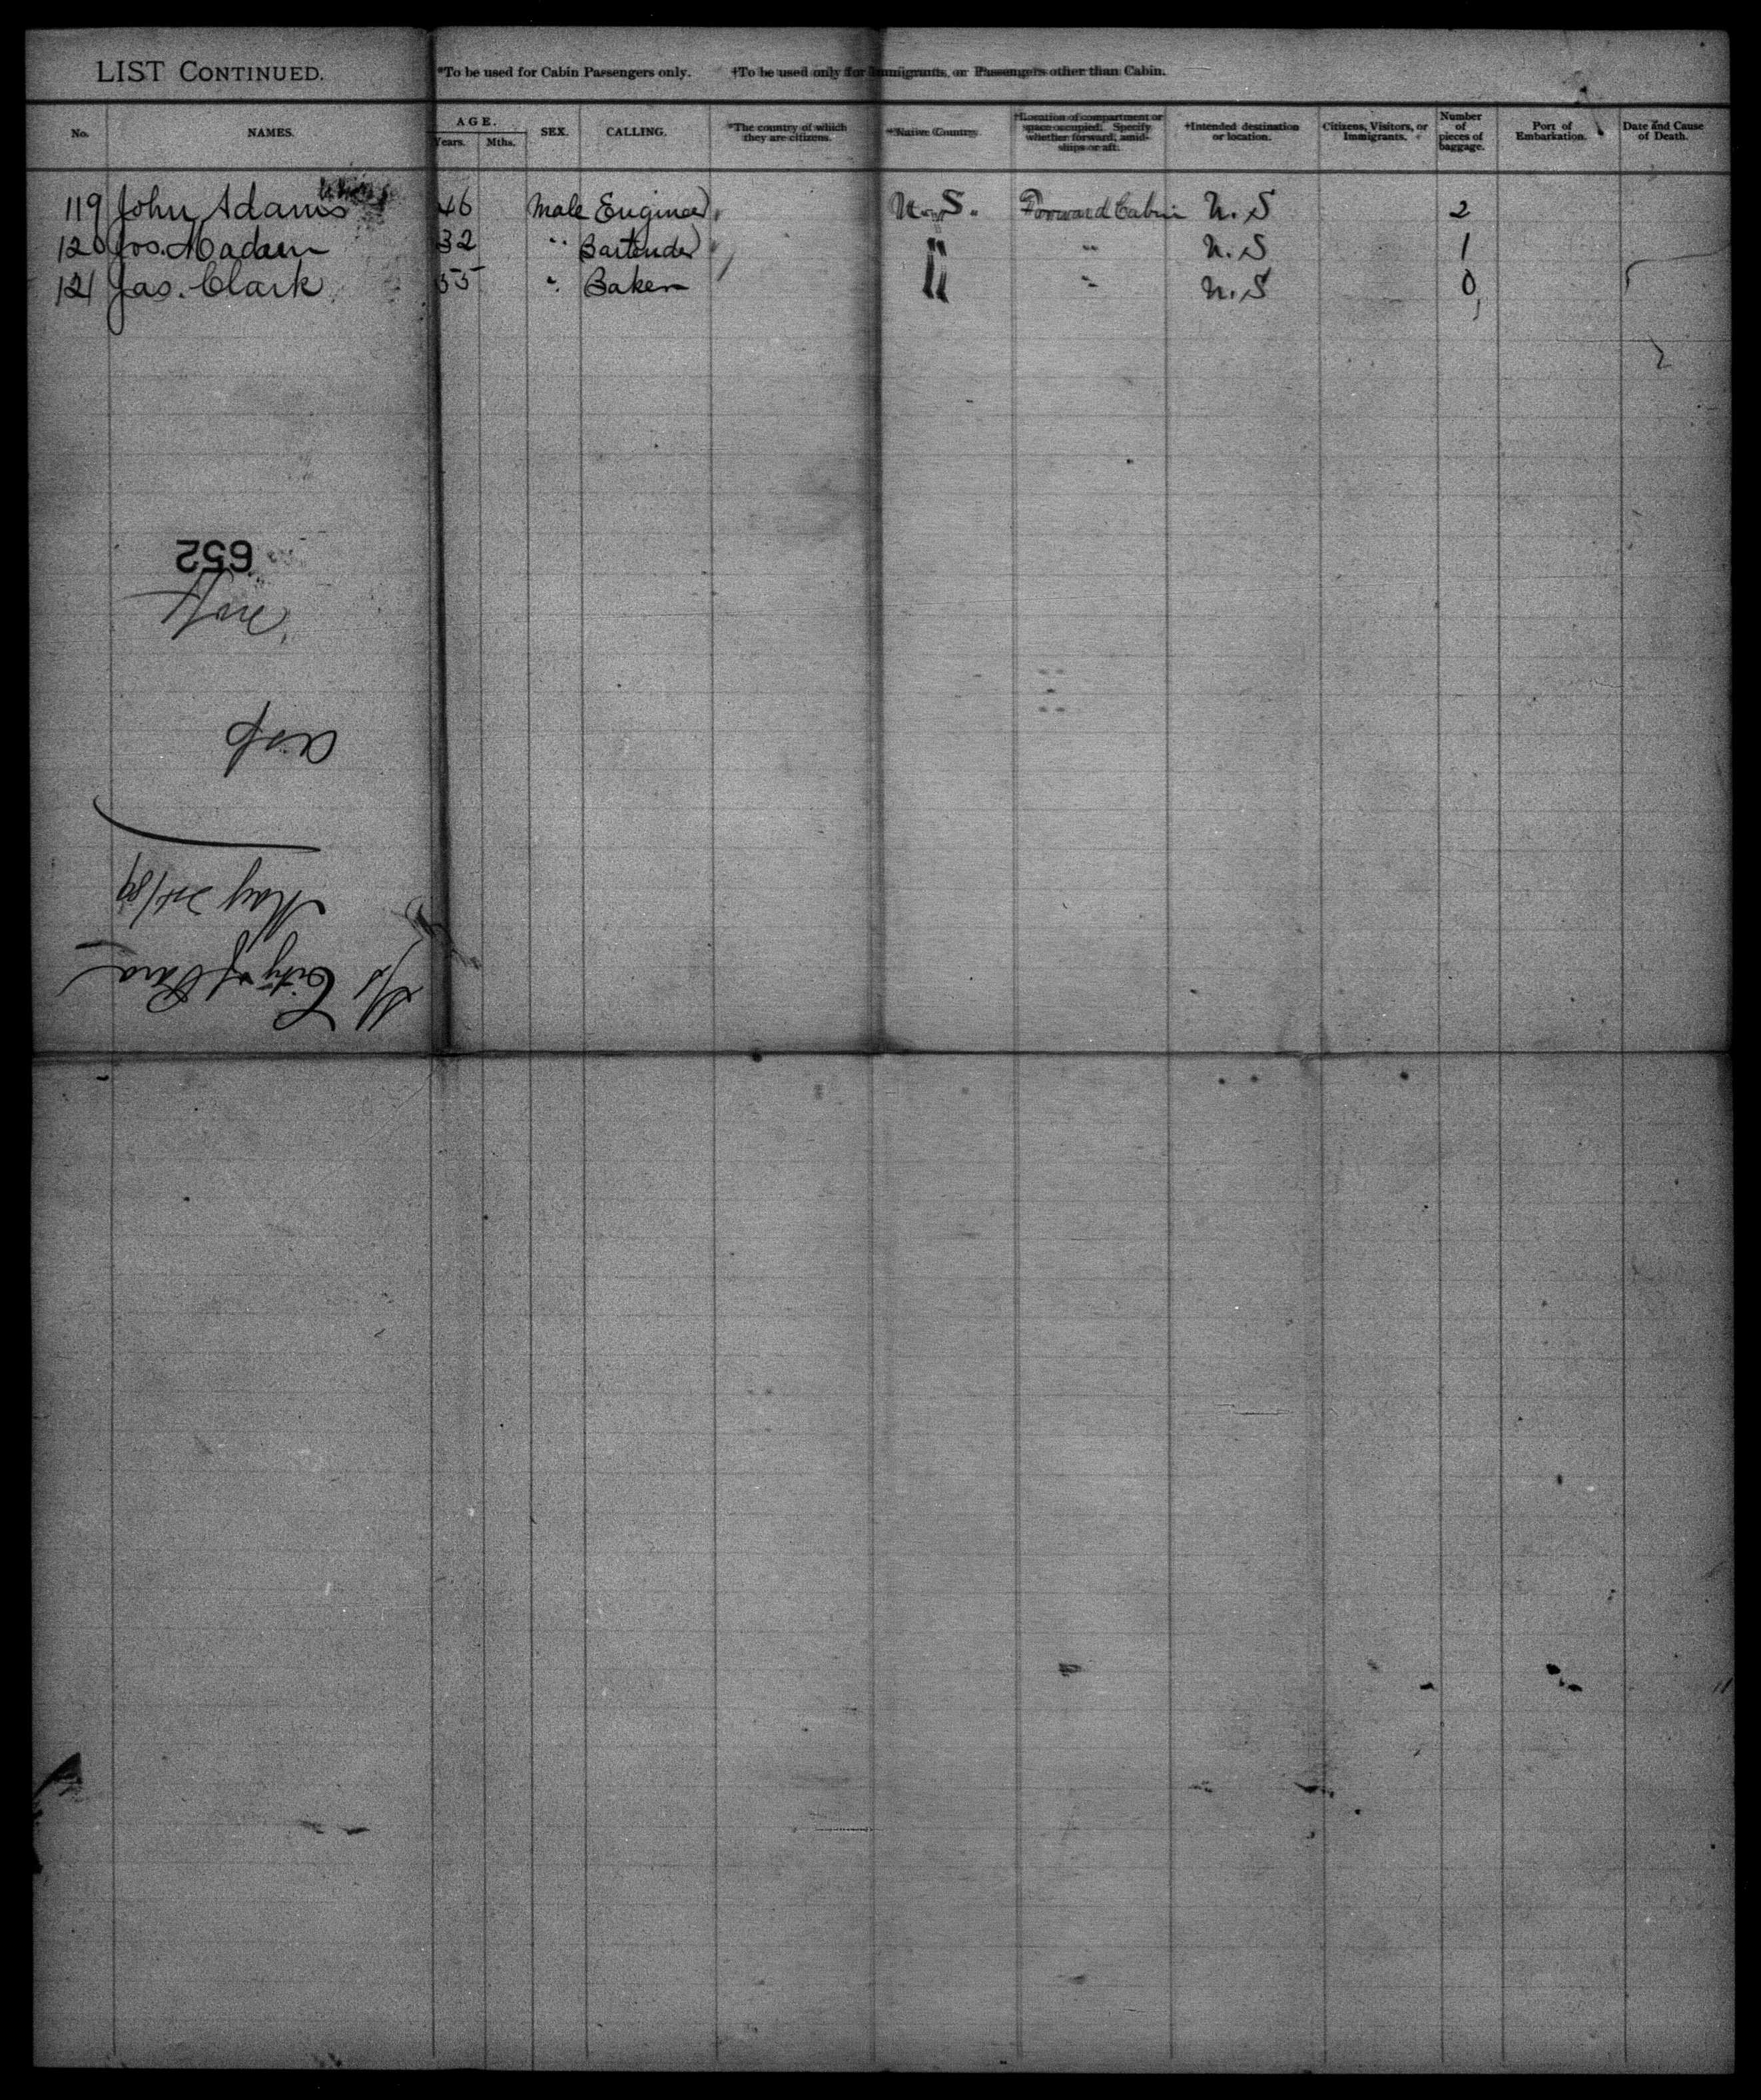 LIST CONTINUED. *To be used for Cabin Passengers only. †To be used only for Immigrants, or Passengers other than Cabin.
No. NAMES. AGE. Years. Mths. SEX. CALLING. *The country of which they are citizens. *Native Country. †Location of compartment or space occupied. Specify whether forward, amidships or aft. †Intended destination or location. Citizens, Visitors, or Immigrants. Number of pieces of baggage. Port of Embarkation. Date and Cause of Death.
119 John Adams 46 Male Engineer U.S. Forward Cabin U.S 2
120 Jos. Madden 32 " Bartender " " U.S 1
121 Jas. Clark 55 " Baker " " U.S 0
652
asp
May /89
S/S City of Para